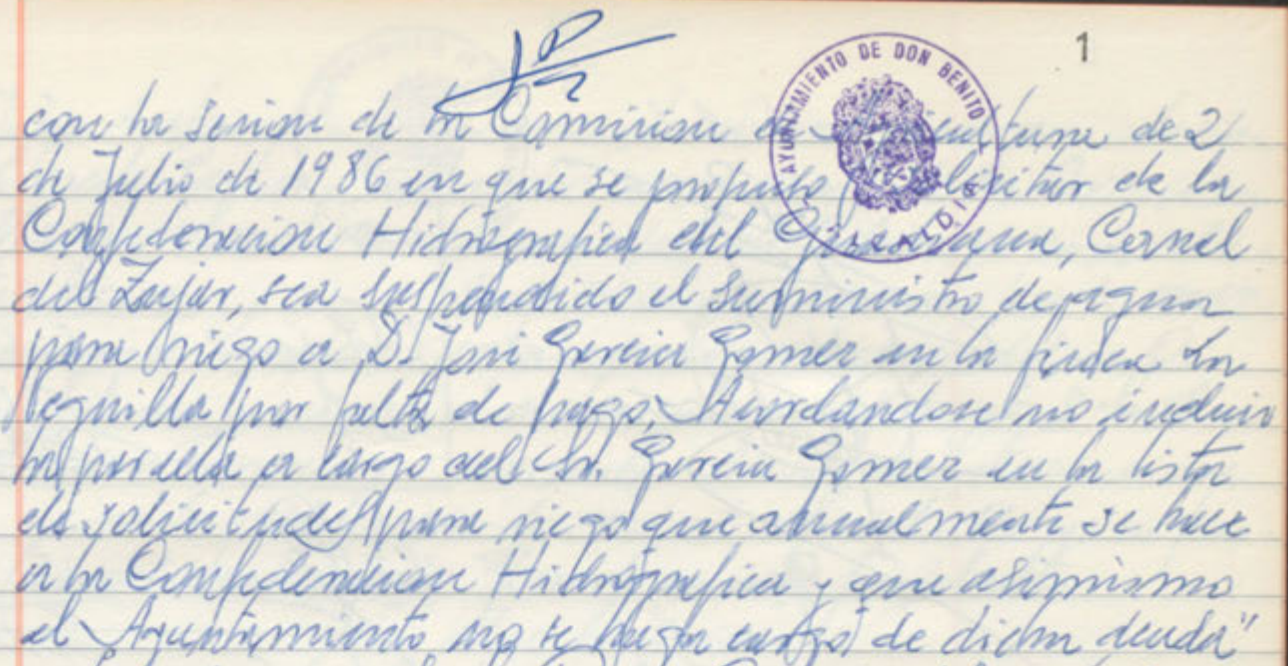 1
AYUNTAMIENTO DE DON BENITO
ALCALDIA
con la sesion de la Comision de Agricultura de 2
de Julio de 1986 en que se propuso solicitar de la
Confederacion Hidrografica del Guadiana, Canal
del Zujar, sea suspendido el suministro de agua
para riego a D. José Garcia Gomez en la finca La
Veguilla por falta de pago, Acordandose no incluir
la parcela a cargo del Sr. Garcia Gomez en la lista
de solicitudes para riego que anualmente se hace
a la Confederacion Hidrografica y que asimismo
el Ayuntamiento no se haga cargo de dicha deuda"